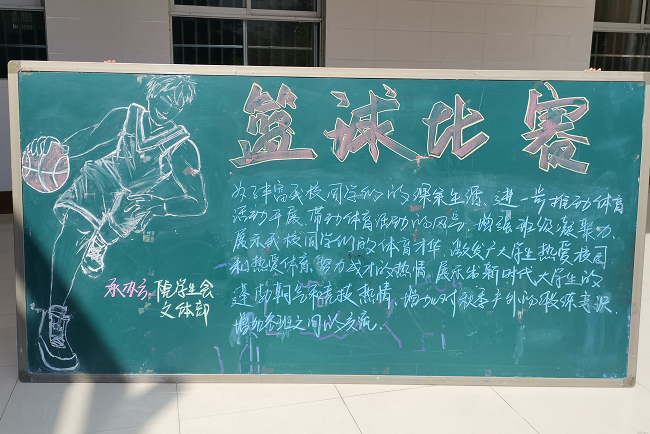 篮球比赛
为了丰富我校同学们的课余生活,进一步推动体育
活动开展,带动体育活动的风气,增强班级凝聚力,
展示我校同学们的体育才华,激发广大学生热爱校园
和热爱体育,努力成才的热情,展示出新时代大学生的
蓬勃朝气和竞技热情,增加对秋季户外的锻炼意识,
增加各班之间的交流.
承办方:院学生会
文体部